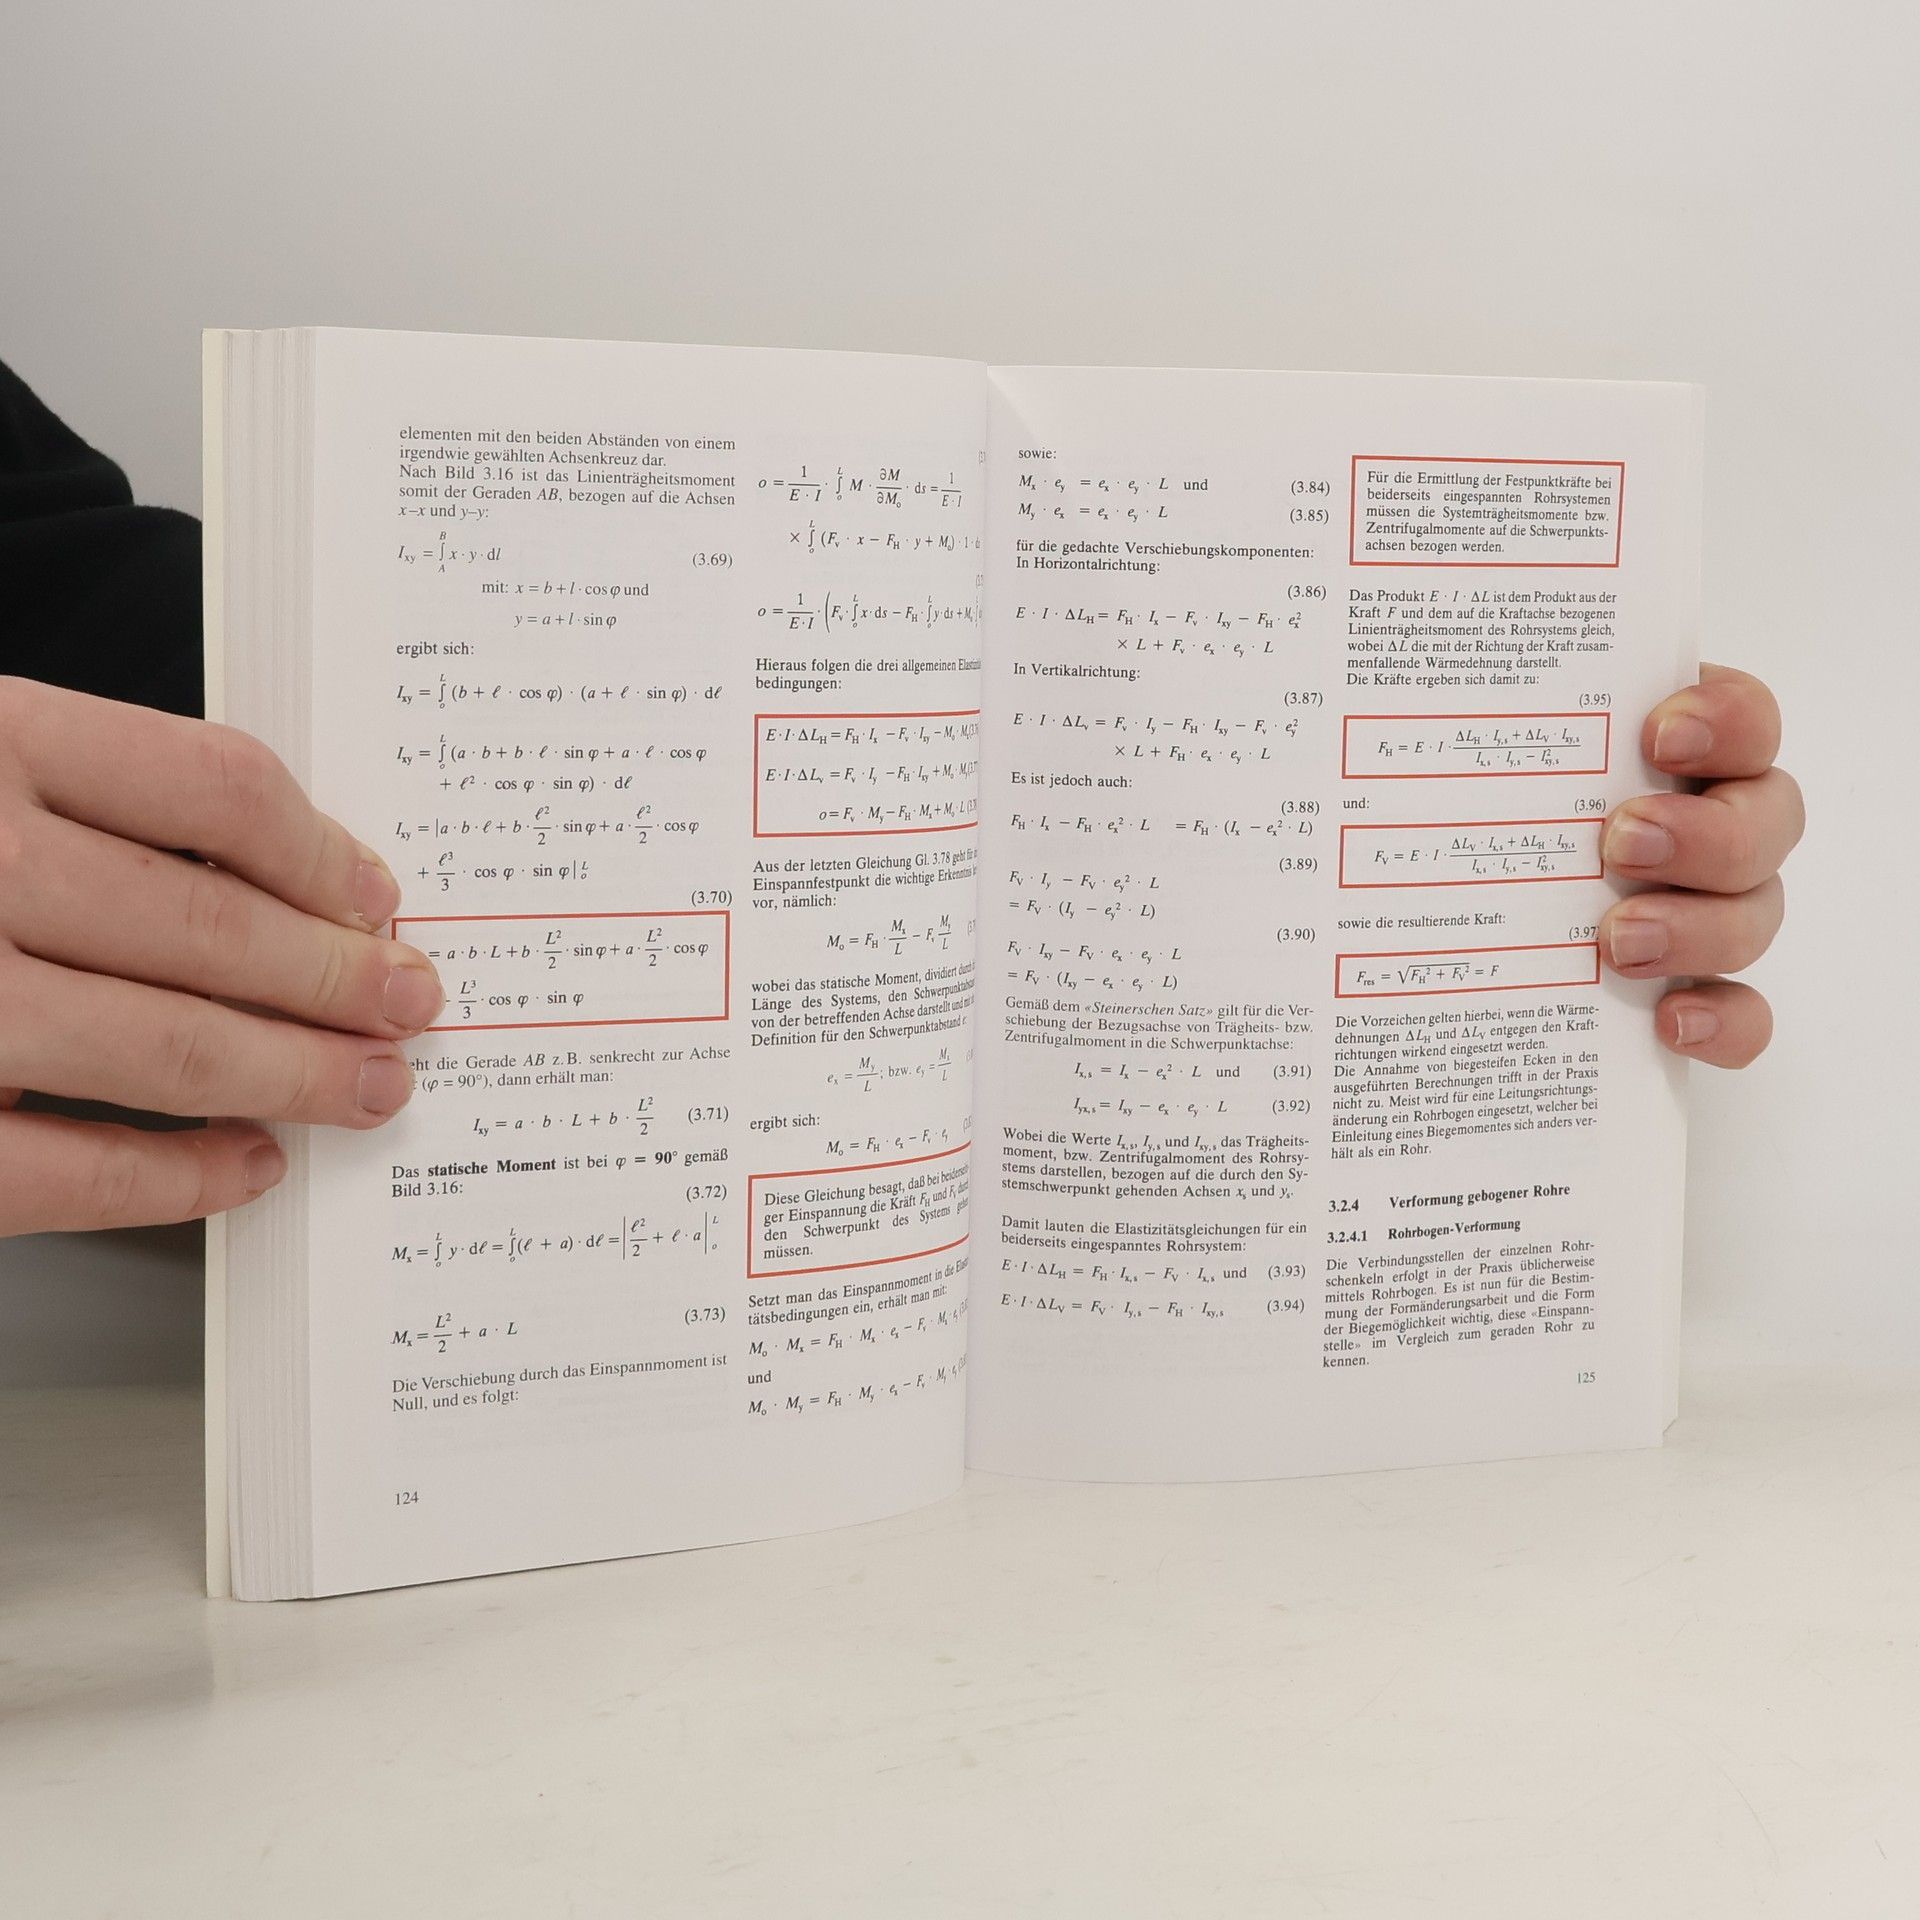 elementen mit den beiden Abständen von einem
irgendwie gewählten Achsenkreuz dar.
Nach Bild 3.16 ist das Linienträgheitsmoment
somit der Geraden AB, bezogen auf die Achsen
x–x und y–y:
I_xy = ∫_A^B x · y · dl (3.69)
mit: x = b + l · cos φ und
y = a + l · sin φ
ergibt sich:
I_xy = ∫_o^L (b + ℓ · cos φ) · (a + ℓ · sin φ) · dℓ
I_xy = ∫_o^L (a · b + b · ℓ · sin φ + a · ℓ · cos φ
+ ℓ² · cos φ · sin φ) · dℓ
I_xy = |a · b · ℓ + b · ℓ²/2 · sin φ + a · ℓ²/2 · cos φ
+ ℓ³/3 · cos φ · sin φ|_o^L
(3.70)
= a · b · L + b · L²/2 · sin φ + a · L²/2 · cos φ
L³/3 · cos φ · sin φ
die Gerade AB z. B. senkrecht zur Achse
(φ = 90°), dann erhält man:
I_xy = a · b · L + b · L²/2 (3.71)
Das statische Moment ist bei φ = 90° gemäß
Bild 3.16: (3.72)
M_x = ∫_o^L y · dℓ = ∫_o^L (ℓ + a) · dℓ = |ℓ²/2 + ℓ · a|_o^L
(3.73)
M_x = L²/2 + a · L
Die Verschiebung durch das Einspannmoment ist
Null, und es folgt:
124
o = 1/(E · I) · ∫_o^L M · ∂M/∂M_o · ds = 1/(E · I)
× ∫_o^L (F_v · x − F_H · y + M_o) · 1 ·
o = 1/(E · I) · (F_v · ∫_o^L x · ds − F_H · ∫_o^L y · ds + M_o ·
Hieraus folgen die drei allgemeinen
bedingungen:
E · I · ΔL_H = F_H · I_x − F_v · I_xy − M_o · M_x
E · I · ΔL_v = F_v · I_y − F_H · I_xy + M_o · M_y
o = F_v · M_y − F_H · M_x + M_o · L
Aus der letzten Gleichung Gl. 3.78 geht für
Einspannfestpunkt die wichtige Erkenntnis
vor, nämlich:
M_o = F_H · M_x/L − F_v M_y/L
wobei das statische Moment, dividiert durch
Länge des Systems, den
von der betreffenden Achse darstellt und
Definition für den Schwerpunktabstand e:
e_x = M_y/L; bzw. e_y = M_x/L
ergibt sich:
M_o = F_H · e_x − F_v · e_y
Diese Gleichung besagt, daß bei
ger Einspannung die Kräft F_H und F_v durch
den Schwerpunkt des Systems gehen
müssen.
Setzt man das Einspannmoment in die
tätsbedingungen ein, erhält man mit:
M_o · M_x = F_H · M_x · e_x − F_v · M_x · e_y
und
M_o · M_y = F_H · M_y · e_x − F_v · M_y · e_y
sowie:
M_x · e_y = e_x · e_y · L und (3.84)
M_y · e_x = e_x · e_y · L (3.85)
für die gedachte Verschiebungskomponenten:
In Horizontalrichtung:
(3.86)
E · I · ΔL_H = F_H · I_x − F_v · I_xy − F_H · e_x²
× L + F_v · e_x · e_y · L
In Vertikalrichtung:
(3.87)
E · I · ΔL_v = F_v · I_y − F_H · I_xy − F_v · e_y²
× L + F_H · e_x · e_y · L
Es ist jedoch auch:
(3.88)
F_H · I_x − F_H · e_x² · L = F_H · (I_x − e_x² · L)
(3.89)
F_V · I_y − F_V · e_y² · L
= F_V · (I_y − e_y² · L)
(3.90)
F_V · I_xy − F_V · e_x · e_y · L
= F_V · (I_xy − e_x · e_y · L)
Gemäß dem «Steinerschen Satz» gilt für die Ver-
schiebung der Bezugsachse von Trägheits- bzw.
Zentrifugalmoment in die Schwerpunktachse:
I_x,s = I_x − e_x² · L und (3.91)
I_yx,s = I_xy − e_x · e_y · L (3.92)
Wobei die Werte I_x,s, I_y,s und I_xy,s das Trägheits-
moment, bzw. Zentrifugalmoment des Rohrsy-
stems darstellen, bezogen auf die durch den Sy-
stemschwerpunkt gehenden Achsen x_s und y_s.
Damit lauten die Elastizitätsgleichungen für ein
beiderseits eingespanntes Rohrsystem:
E · I · ΔL_H = F_H · I_x,s − F_V · I_x,s und (3.93)
E · I · ΔL_V = F_V · I_y,s − F_H · I_xy,s (3.94)
Für die Ermittlung der Festpunktkräfte bei
beiderseits eingespannten Rohrsystemen
müssen die Systemträgheitsmomente bzw.
Zentrifugalmomente auf die Schwerpunkts-
achsen bezogen werden.
Das Produkt E · I · ΔL ist dem Produkt aus der
Kraft F und dem auf die Kraftachse bezogenen
Linienträgheitsmoment des Rohrsystems gleich,
wobei ΔL die mit der Richtung der Kraft zusam-
menfallende Wärmedehnung darstellt.
Die Kräfte ergeben sich damit zu:
(3.95)
F_H = E · I · (ΔL_H · I_y,s + ΔL_V · I_xy,s)/(I_x,s · I_y,s − I²_xy,s)
und: (3.96)
F_V = E · I · (ΔL_V · I_x,s + ΔL_H · I_xy,s)/(I_x,s · I_y,s − I²_xy,s)
sowie die resultierende Kraft:
(3.97)
F_res = √(F_H² + F_V²) = F
Die Vorzeichen gelten hierbei, wenn die Wärme-
dehnungen ΔL_H und ΔL_V entgegen den Kraft-
richtungen wirkend eingesetzt werden.
Die Annahme von biegesteifen Ecken in den
ausgeführten Berechnungen trifft in der Praxis
nicht zu. Meist wird für eine Leitungsrichtungs-
änderung ein Rohrbogen eingesetzt, welcher bei
Einleitung eines Biegemomentes sich anders ver-
hält als ein Rohr.
3.2.4 Verformung gebogener Rohre
3.2.4.1 Rohrbogen-Verformung
Die Verbindungsstellen der einzelnen Rohr-
schenkeln erfolgt in der Praxis üblicherweise
mittels Rohrbogen. Es ist nun für die Bestim-
mung der Formänderungsarbeit und die Form
der Biegemöglichkeit wichtig, diese «Einspann-
stelle» im Vergleich zum geraden Rohr zu
kennen.
125